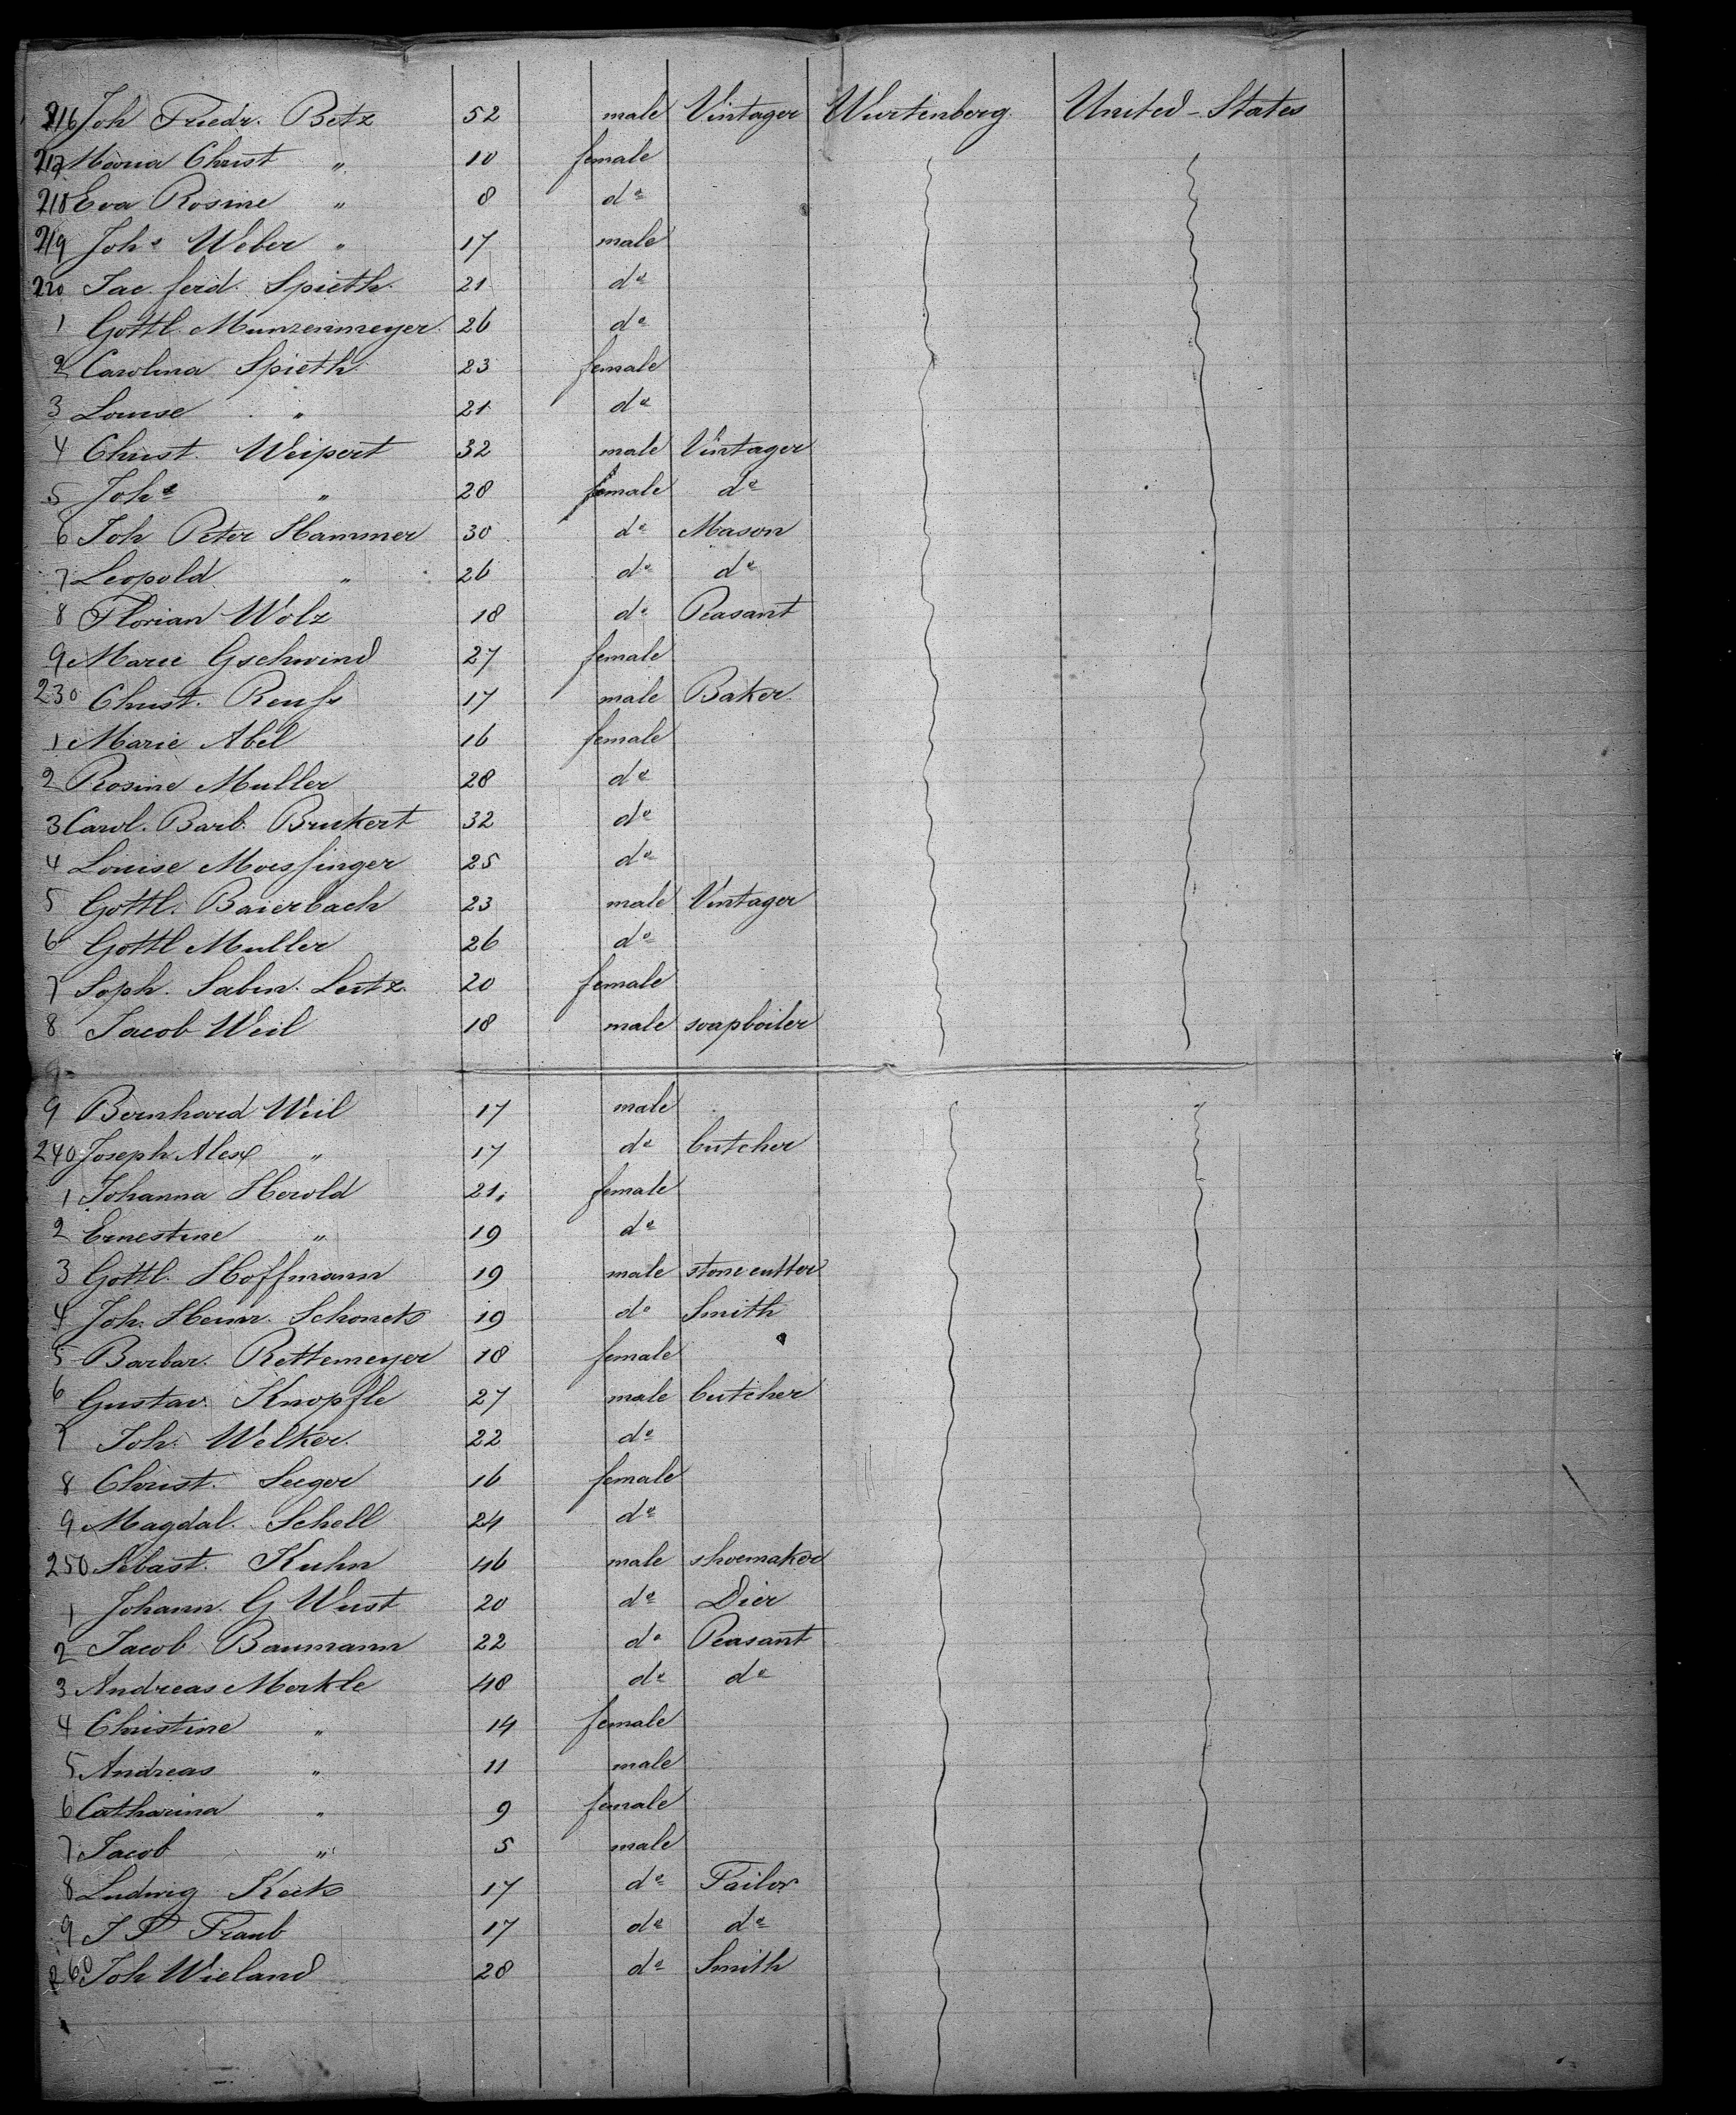 216 Joh Friedr. Betz 52 male Vintager Wurtenberg United-States
217 Maria Christ " 10 female
218 Eva Rosine " 8 do
219 Johs Weber " 17 male
220 Jac. ferd. Spieth 21 do
1 Gottl. Munzenmeyer 26 do
2 Carolina Spieth 23 female
3 Louise " 21 do
4 Christ. Weipert 32 male Vintager
5 Johs " 28 female do
6 Joh Peter Hammer 30 do Mason
7 Leopold " 26 do do
8 Florian Wolz 18 do Peasant
9 Marie Gschwind 27 female
230 Christ. Reuss 17 male Baker
1 Marie Abel 16 female
2 Rosine Muller 28 do
3 Carol. Barb. Bruckert 32 do
4 Louise Moessinger 25 do
5 Gottl. Baierbach 23 male Vintager
6 Gottl Muller 26 do
7 Soph. Sabin. Lutz 20 female
8 Jacob Weil 18 male soapboiler
9
9 Bernhard Weil 17 male
240 Joseph Alex " 17 do butcher
1 Johanna Herold 21 female
2 Ernestine " 19 do
3 Gottl. Hoffmann 19 male stone cutter
4 Joh. Heinr. 19 do Smith
5 Barbar. Rettemeyer 18 female
6 Gustav. Knopfle 27 male butcher
7 Joh. Welker 22 do
8 Christ. Seeger 16 female
9 Magdal. Schell 24 do
250 Sebast. Kuhn 46 male shoemaker
1 Johann. G Wust 20 do Dier
2 Jacob Baumann 22 do Peasant
3 Andreas Merkle 48 do do
4 Christine " 14 female
5 Andreas " 11 male
6 Catharina " 9 female
7 Jacob " 5 male
8 Ludwig 17 do Tailor
9 J P Traub 17 do do
260 Joh Wieland 28 do Smith